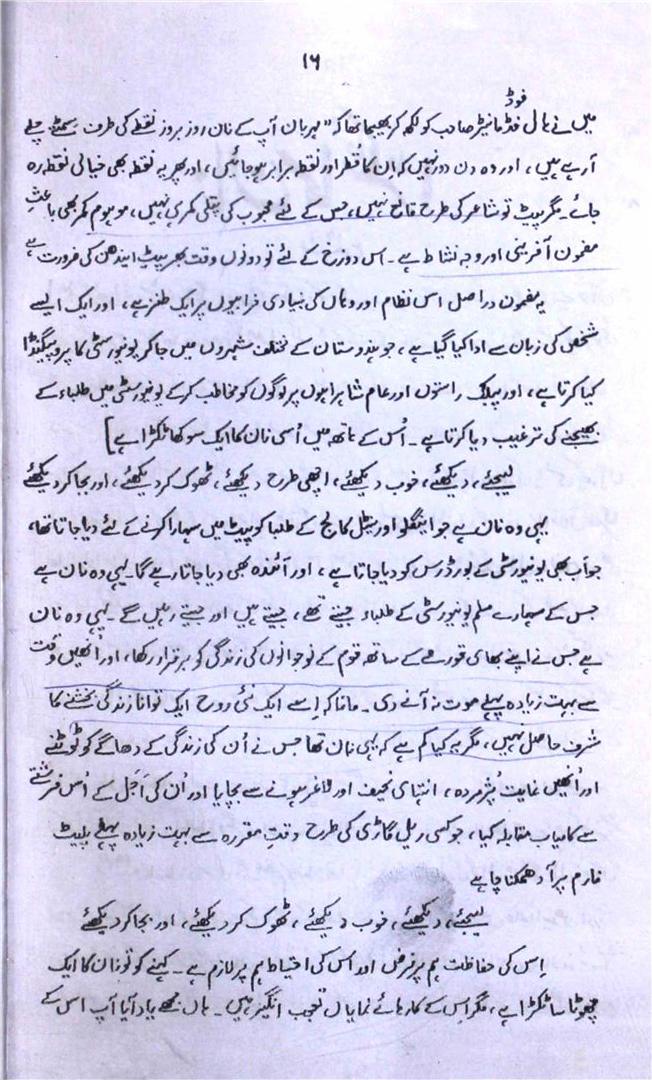 ۱۶
فوڈ
میں نے ہائی فڈ مانیٹر صاحب کو لکھ کر بھیجا تھا کہ "مہربان آپ کے نان روز بروز نقطے کی طرف سمٹتے چلے
آرہے ہیں، اور وہ دن دور نہیں کہ ان کا قُطر اور نقطہ برابر ہوجائیں، اور پھر یہ نقطہ بھی خیالی نقطہ رہ
جائے۔ مگر پیٹ تو شاعر کی طرح قانع نہیں، جس کے لئے محبوب کی پتلی کمر ہی نہیں، موہوم کمر بھی باعثِ
مضمون آفرینی اور وجہ نشاط ہے۔ اس دوزخ کے لئے تو دونوں وقت بھر پیٹ ایندھن کی ضرورت ہے
یہ مضمون دراصل اس نظام اور وہاں کی بنیادی خرابیوں پر ایک طنز ہے، اور ایک ایسے
شخص کی زبان سے ادا کیا گیا ہے، جو ہندوستان کے مختلف شہروں میں جاکر یونیورسٹی کا پروپیگنڈا
کیا کرتا ہے، اور پبلک راستوں اور عام شاہراہوں پر لوگوں کو مخاطب کرکے یونیورسٹی میں طلباء کے
بھیجنے کی ترغیب دیا کرتا ہے۔ اُس کے ہاتھ میں اُسی نان کا ایک سوکھا ٹکڑا ہے]
لیجئے، دیکھئے، خوب دیکھئے، اچھی طرح دیکھئے، ٹھوک کر دیکھئے، اور بجا کر دیکھئے
یہی وہ نان ہے جو اینگلو اورینٹل کالج کے طلبا کو پیٹ میں سہارا کرنے کے لئے دیا جاتا تھا،
جو اب بھی یونیورسٹی کے بورڈرس کو دیا جاتا ہے، اور آئندہ بھی دیا جاتا رہے گا۔ یہی وہ نان ہے
جس کے سہارے مسلم یونیورسٹی کے طلباء جیتے تھے، جیتے ہیں اور جیتے رہیں گے۔ یہی وہ نان
ہے جس نے اپنے بھائی قورمے کے ساتھ قوم کے نوجوانوں کی زندگی کو برقرار رکھا، اور انھیں وقت
سے بہت زیادہ پہلے موت نہ آنے دی۔ مانا کہ اِسے ایک نئی روح ایک توانا زندگی بخشنے کا
شرف حاصل نہیں، مگر یہ کیا کم ہے کہ یہی نان تھا جس نے اُن کی زندگی کے دھاگے کو ٹوٹنے
اور اُنھیں غایت پژمردہ، انتہائی نحیف اور لاغر ہونے سے بچایا اور اُن کی اَجَل کے اُس فرشتے
سے کامیاب مقابلہ کیا، جو کسی ریل گاڑی کی طرح وقتِ مقررہ سے بہت زیادہ پہلے پلیٹ
فارم پر آ دھمکنا چاہے
لیجئے، دیکھئے، خوب دیکھئے، ٹھوک کر دیکھئے، اور بجا کر دیکھئے
اِس کی حفاظت ہم پر فرض اور اُس کی احتیاط ہم پر لازم ہے۔ کہنے کو تو نان کا ایک
چھوٹا سا ٹکڑا ہے، مگر اس کے کارہائے نمایاں تعجب انگیز ہیں۔ ہاں مجھے یاد آیا آپ اس کے